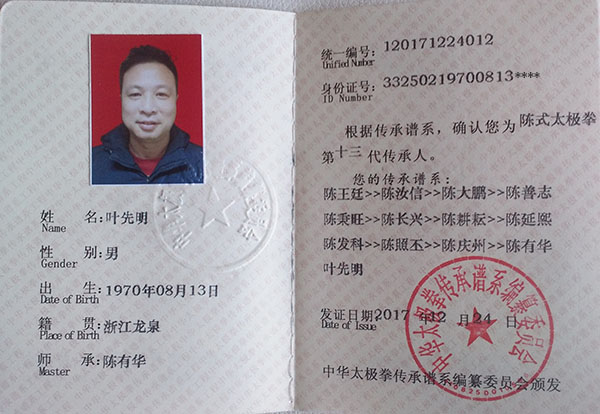 姓 名:叶先明
Name
性 别:男
Gender
出 生:1970年08月13日
Date of Birth
籍 贯:浙江龙泉
Place of Birth
师 承:陈有华
Master
统一编号:120171224012
Unified Number
身份证号:33250219700813****
ID Number
根据传承谱系,确认您为陈式太极拳
第十三代传承人。
您的传承谱系:
陈王廷>>陈汝信>>陈大鹏>>陈善志
陈秉旺>>陈长兴>>陈耕耘>>陈延熙
陈发科>>陈照丕>>陈庆州>>陈有华
叶先明
发证日期2017年12月24日
Date of Issue
中华太极拳传承谱系编纂委员会
中华太极拳传承谱系编纂委员会颁发